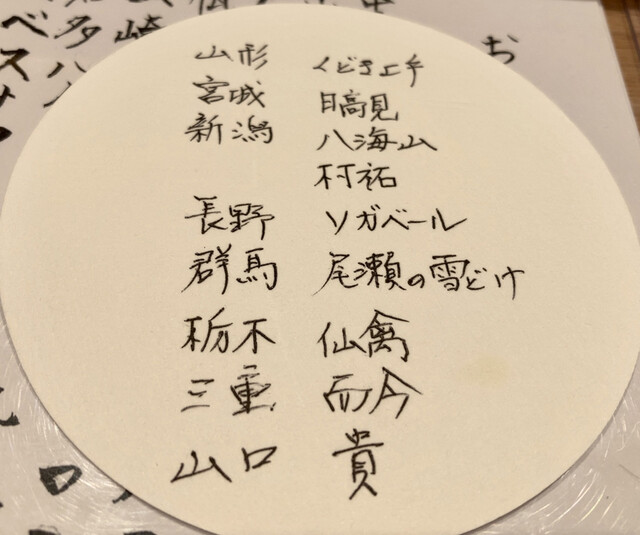 山形 くどき上手
宮城 日高見
新潟 八海山
村祐
長野 ソガベール
群馬 尾瀬の雪どけ
栃木 仙禽
三重 而今
山口 貴
お